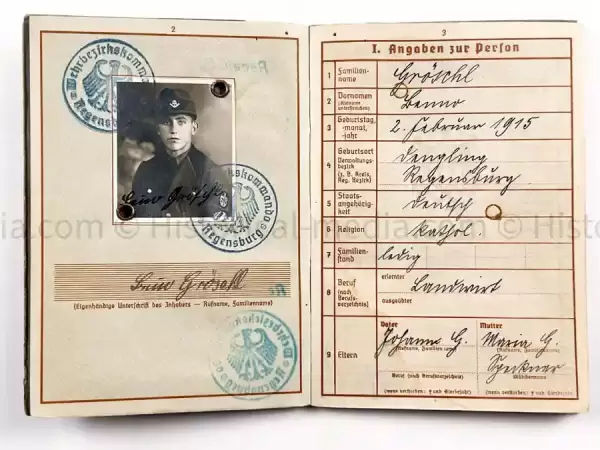 2
Wehrbezirkskommando
Regensburg
Wehrbezirkskommando
Regensburg
Benno Gröschl
Benno Gröschl
(Eigenhändige Unterschrift des Inhabers — Rufname, Familienname)
3
I. Angaben zur Person
1 Familien-
name
Gröschl
2 Vornamen
(Rufname
unterstreichen)
Benno
3 Geburtstag,
-monat,
-jahr
2. Februar 1915
4 Geburtsort
Verwaltungs-
bezirk
(z. B. Kreis,
Reg. Bezirk)
Dengling
Regensburg
5 Staats-
angehörig-
keit
Deutsch
6 Religion
kathol.
7 Familien-
stand
ledig
8 Beruf
(nach
Berufs-
verzeichnis)
erlernter
Landwirt
ausgeübter
9 Eltern
Vater
Johann G.
(Rufname, Familienname)
Beruf (nach Berufsverzeichnis)
(wenn verstorben: † und Sterbejahr)
Mutter
Maria G.
(Rufname, Familienname)
Speckner
Mädchenname
(wenn verstorben: † und Sterbejahr)
ia.com © Historical-media.com © Histor